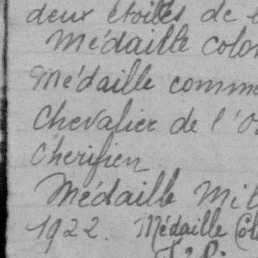 deux étoiles de
Médaille colo
Médaille comme
Chevalier de l'O
Chérifien
Médaille Mil
1922. Médaille Col